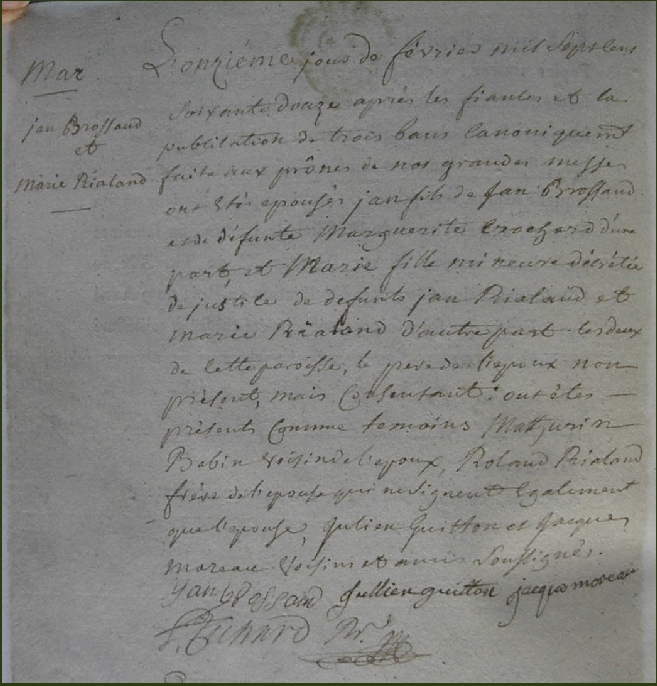 Mar
jan Brossaud
et
Marie Rialand
L'onzième jour de février mil sept cens
soixante douze après les fiantes et la
publication de trois bans canoniquemt
faite aux prônes de nos grandes messe
ont étés épousés jan fils de Jan Brossaud
et de défunte Marguerite Crochard d'une
part, et Marie fille mineure décrétée
de justice de defunts jan Rialand et
marie Rialand d'autre part les deux
de cette paroisse, le pere de l'epoux non
présent, mais consentant : ont étés
présents comme temoins Mathurin
Bobin voisin de l'epoux, Roland Rialand
frère de l'epouse qui ne signent également
que l'epouse, Julien Guitton et Jacque
moreau voisins et amis soussignés.
jan Brossaud Jullien guitton jacque moreau